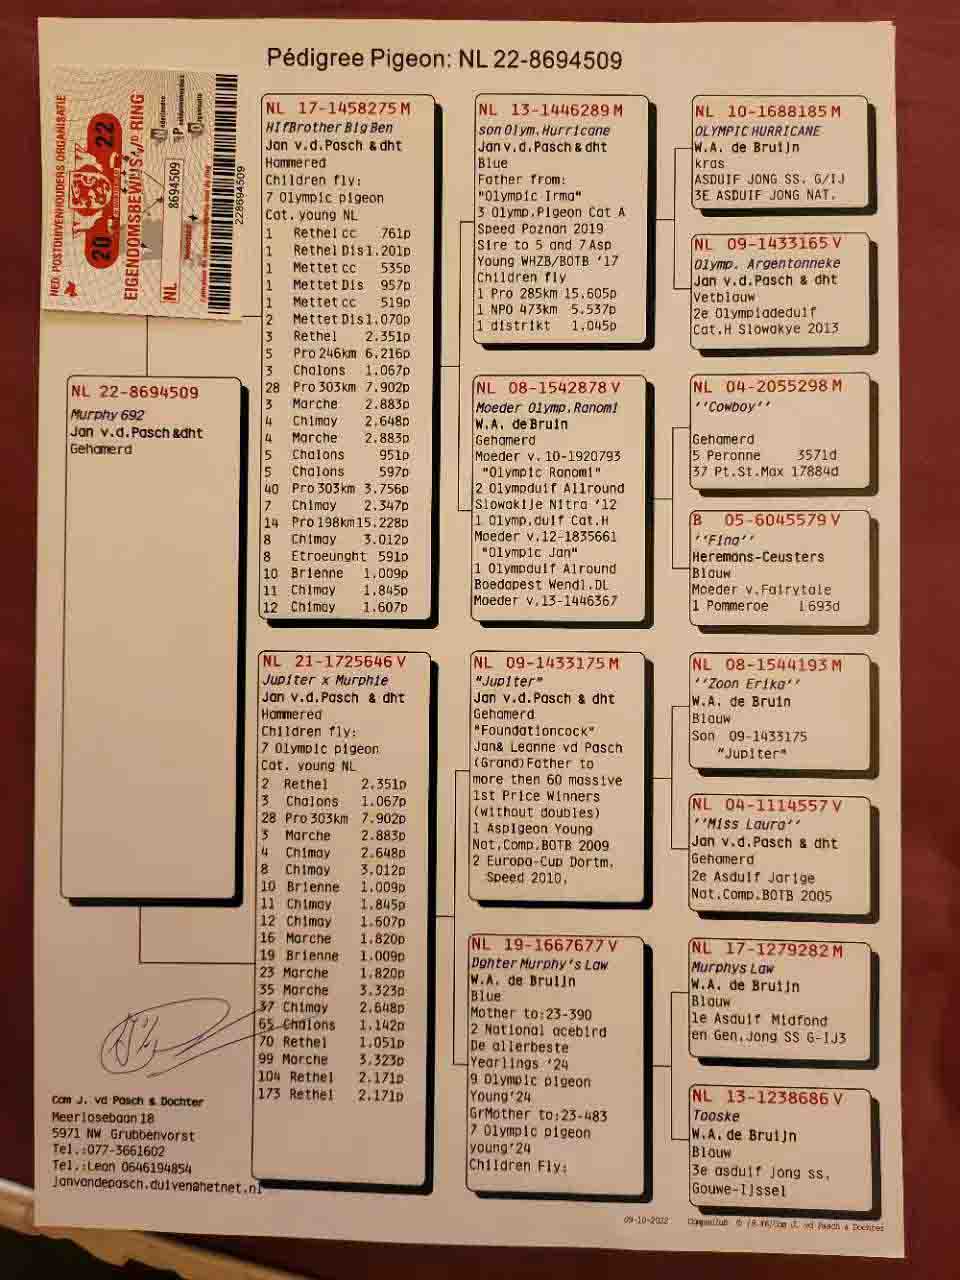 Pédigree Pigeon: NL 22-8694509
NED. POSTDUIVENHOUDERS ORGANISATIE
20 22
EIGENDOMSBEWIJS V/D RING
NL 8694509
228694509
NL 22-8694509
Murphy 692
Jan v.d.Pasch &dht
Gehamerd
NL 17-1458275 M
HlfBrother Big Ben
Jan v.d.Pasch & dht
Hammered
Children fly:
7 Olympic pigeon
Cat. young NL
1 Rethel cc 761p
1 Rethel Dis1.201p
1 Mettet cc 535p
1 Mettet Dis 957p
1 Mettet cc 519p
2 Mettet Dis1.070p
3 Rethel 2.351p
5 Pro 246km 6.216p
3 Chalons 1.067p
28 Pro 303km 7.902p
3 Marche 2.883p
4 Chimay 2.648p
4 Marche 2.883p
5 Chalons 951p
5 Chalons 597p
40 Pro 303km 3.756p
7 Chimay 2.347p
14 Pro 198km15.228p
8 Chimay 3.012p
8 Etroeunght 591p
10 Brienne 1.009p
11 Chimay 1.845p
12 Chimay 1.607p
NL 21-1725646 V
Jupiter x Murphie
Jan v.d.Pasch & dht
Hammered
Children fly:
7 Olympic pigeon
Cat. young NL
2 Rethel 2.351p
3 Chalons 1.067p
28 Pro 303km 7.902p
3 Marche 2.883p
4 Chimay 2.648p
8 Chimay 3.012p
10 Brienne 1.009p
11 Chimay 1.845p
12 Chimay 1.607p
16 Marche 1.820p
19 Brienne 1.009p
23 Marche 1.820p
35 Marche 3.323p
37 Chimay 2.648p
65 Chalons 1.142p
70 Rethel 1.051p
99 Marche 3.323p
104 Rethel 2.171p
173 Rethel 2.171p
NL 13-1446289 M
son Olym.Hurricane
Jan v.d.Pasch & dht
Blue
Father from:
"Olympic Irma"
3 Olymp.Pigeon Cat A
Speed Poznan 2019
Sire to 5 and 7 Asp
Young WHZB/BOTB '17
Children fly
1 Pro 285km 15.605p
1 NPO 473km 5.537p
1 distrikt 1.045p
NL 08-1542878 V
Moeder Olymp.Ranomi
W.A. de Bruin
Gehamerd
Moeder v. 10-1920793
"Olympic Ranomi"
2 Olympduif Allround
Slowakije Nitra '12
1 Olymp.duif Cat.H
Moeder v.12-1835661
"Olympic Jan"
1 Olympduif Alround
Boedapest Wendl.DL
Moeder v.13-1446367
NL 09-1433175 M
"Jupiter"
Jan v.d.Pasch & dht
Gehamerd
"Foundationcock"
Jan& Leanne vd Pasch
(Grand)Father to
more then 60 massive
1st Price Winners
(without doubles)
1 Aspigeon Young
Nat.Comp.BOTB 2009
2 Europa-Cup Dortm.
Speed 2010.
NL 19-1667677 V
Dghter Murphy's Law
W.A. de Bruijn
Blue
Mother to:23-390
2 National acebird
De allerbeste
Yearlings '24
9 Olympic pigeon
Young'24
GrMother to:23-483
7 Olympic pigeon
young'24
Children Fly:
NL 10-1688185 M
OLYMPIC HURRICANE
W.A. de Bruijn
kras
ASDUIF JONG SS. G/IJ
3E ASDUIF JONG NAT.
NL 09-1433165 V
Olymp. Argentonneke
Jan v.d.Pasch & dht
Vetblauw
2e Olympiadeduif
Cat.H Slowakye 2013
NL 04-2055298 M
''Cowboy''
Gehamerd
5 Peronne 3571d
37 Pt.St.Max 17884d
B 05-6045579 V
''Fina''
Heremans-Ceusters
Blauw
Moeder v.Fairytale
1 Pommeroe 1693d
NL 08-1544193 M
''Zoon Erika''
W.A. de Bruin
Blauw
Son 09-1433175
"Jupiter"
NL 04-1114557 V
''Miss Laura''
Jan v.d.Pasch & dht
Gehamerd
2e Asduif Jarige
Nat.Comp.BOTB 2005
NL 17-1279282 M
Murphys Law
W.A. de Bruijn
Blauw
1e Asduif Midfond
en Gen.Jong SS G-IJ3
NL 13-1238686 V
Tooske
W.A. de Bruijn
Blauw
3e asduif jong ss.
Gouwe-IJssel
Com J. vd Pasch & Dochter
Meerlosebaan 18
5971 NW Grubbenvorst
Tel.:077-3661602
Tel.:Lean 0646194854
janvandepasch.duiven@hetnet.nl
09-10-2022
Com J. vd Pasch & Dochter